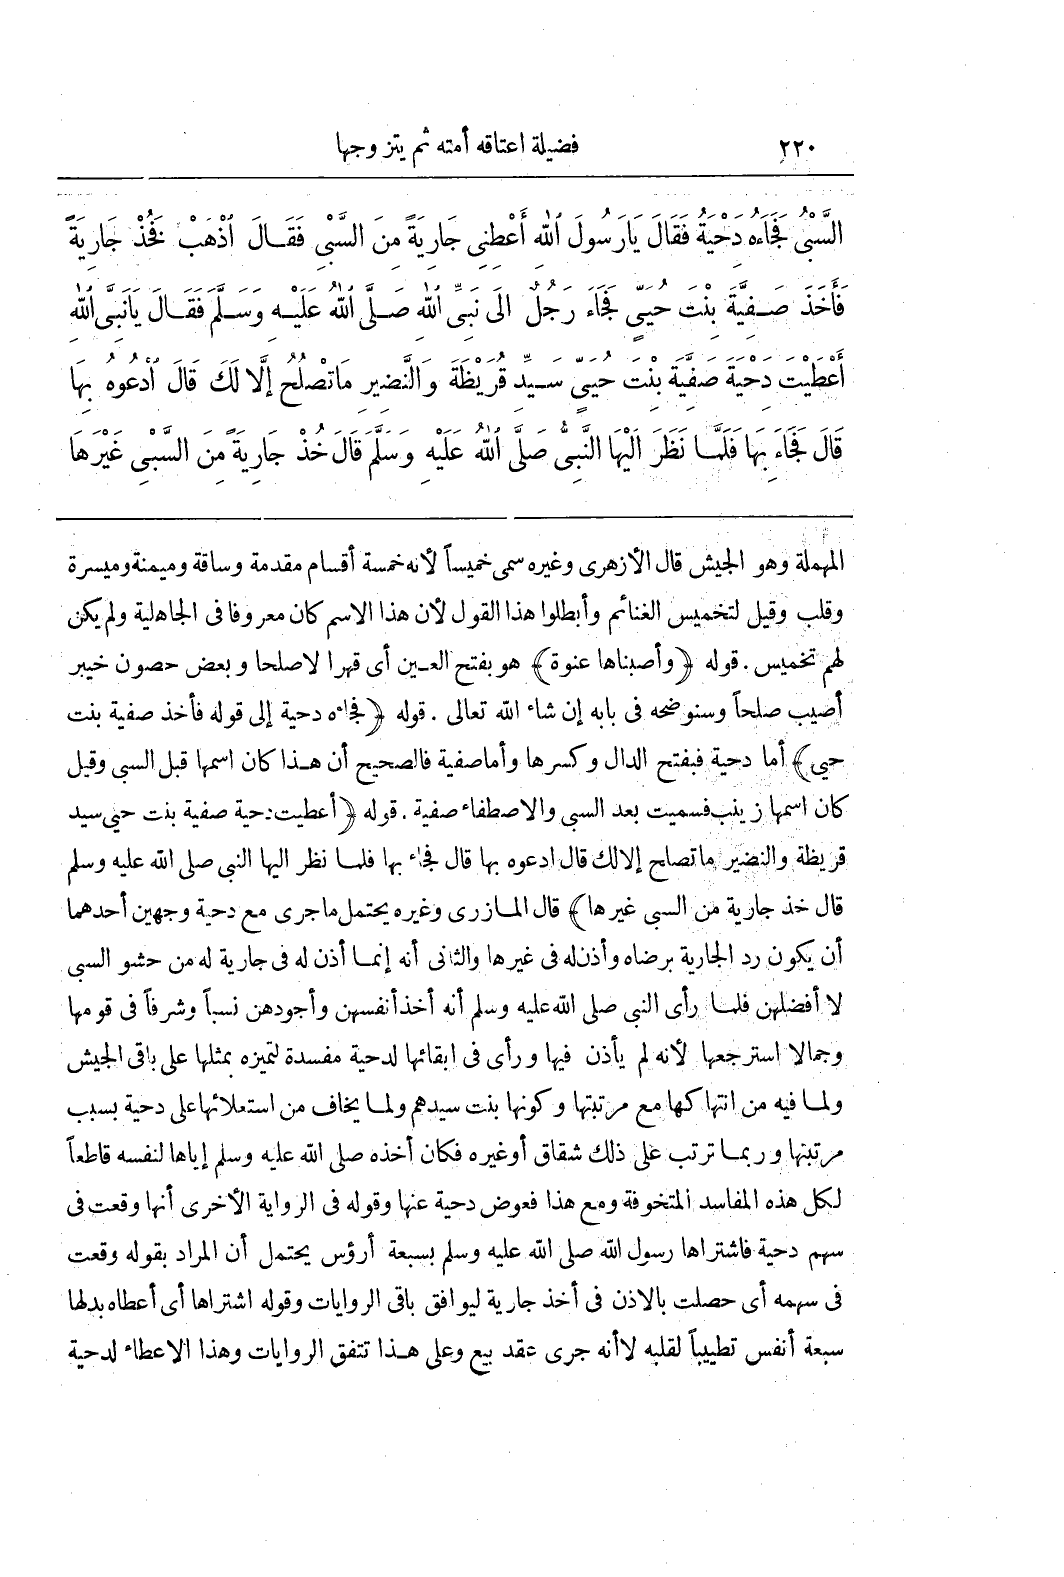 ٢٢٠ فضيلة اعتاقه أمته ثم يتزوجها
السَّبْىُ فَجَاءَهُ دِحْيَةُ فَقَالَ يَارَسُولَ اللهِ أَعْطِنِى جَارِيَةً مِنَ السَّبْىِ فَقَالَ اذْهَبْ فَخُذْ جَارِيَةً
فَأَخَذَ صَفِيَّةَ بِنْتَ حُيَىٍّ فَجَاءَ رَجُلٌ الَى نَبِىِّ اللهِ صَلَّى اللهُ عَلَيْهِ وَسَلَّمَ فَقَالَ يَانَبِىَّ اللهِ
أَعْطَيْتَ دِحْيَةَ صَفِيَّةَ بِنْتَ حُيَىٍّ سَيِّدِ قُرَيْظَةَ وَالنَّضِيرِ مَاتَصْلُحُ إِلَّا لَكَ قَالَ ادْعُوهُ بِهَا
قَالَ فَجَاءَ بِهَا فَلَمَّا نَظَرَ الَيْهَا النَّبِىُّ صَلَّى اللهُ عَلَيْهِ وَسَلَّمَ قَالَ خُذْ جَارِيَةً مِنَ السَّبْىِ غَيْرَهَا
المهملة وهو الجيش قال الأزهرى وغيره سمى خميساً لأنه خمسة أقسام مقدمة وساقة وميمنة وميسرة
وقلب وقيل لتخميس الغنائم وأبطلوا هذا القول لأن هذا الاسم كان معروفا فى الجاهلية ولم يكن
لهم تخميس . قوله ﴿وأصبناها عنوة﴾ هو بفتح العين أى قهرا لاصلحا وبعض حصون خيبر
أصيب صلحاً وسنوضحه فى بابه إن شاء الله تعالى . قوله ﴿فجاءه دحية إلى قوله فأخذ صفية بنت
حيى﴾ أما دحية فبفتح الدال وكسرها وأماصفية فالصحيح أن هذا كان اسمها قبل السبى وقيل
كان اسمها زينب فسميت بعد السبى والاصطفاء صفية . قوله ﴿أعطيت دحية صفية بنت حيى سيد
قريظة والنضير ماتصلح إلالك قال ادعوه بها قال فجاء بها فلما نظر اليها النبى صلى الله عليه وسلم
قال خذ جارية من السبى غيرها﴾ قال المازرى وغيره يحتمل ماجرى مع دحية وجهين أحدهما
أن يكون رد الجارية برضاه وأذن له فى غيرها والثانى أنه إنما أذن له فى جارية له من حشو السبى
لا أفضلهن فلما رأى النبى صلى الله عليه وسلم أنه أخذ أنفسهن وأجودهن نسباً وشرفاً فى قومها
وجمالا استرجعها لأنه لم يأذن فيها ورأى فى ابقائها لدحية مفسدة لتميزه بمثلها على باقى الجيش
ولما فيه من انتهاكها مع مرتبتها وكونها بنت سيدهم ولما يخاف من استعلائها على دحية بسبب
مرتبتها وربما ترتب على ذلك شقاق أوغيره فكان أخذه صلى الله عليه وسلم إياها لنفسه قاطعاً
لكل هذه المفاسد المتخوفة ومع هذا فعوض دحية عنها وقوله فى الرواية الأخرى أنها وقعت فى
سهم دحية فاشتراها رسول الله صلى الله عليه وسلم بسبعة أرؤس يحتمل أن المراد بقوله وقعت
فى سهمه أى حصلت بالاذن فى أخذ جارية ليوافق باقى الروايات وقوله اشتراها أى أعطاه بدلها
سبعة أنفس تطييباً لقلبه لاأنه جرى عقد بيع وعلى هذا تتفق الروايات وهذا الاعطاء لدحية